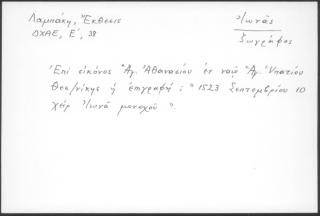 Λαμπάκη, Ἔκθεσις
ΔΧΑΕ, Ε´, 38
Ἰωνᾶς
ζωγράφος
Ἐπί εἰκόνος Ἁγ. Ἀθανασίου ἐν ναῷ Ἁγ. Ὑπατίου
Θεσ/νίκης ἡ ἐπιγραφή: "1523 Σεπτεμβρίου 10
χείρ Ἰωνᾶ μοναχοῦ".